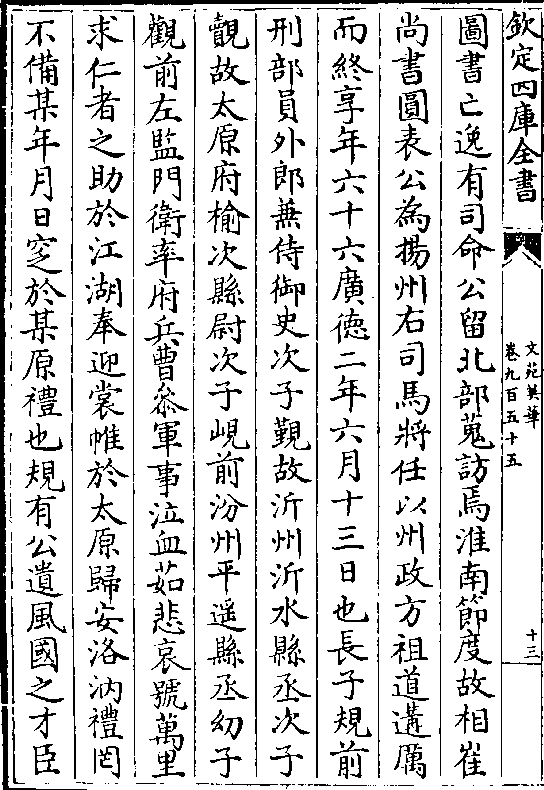 欽定四庫全書
文苑英華
卷九百五十五
十三
圖書亡逸有司命公留北部蒐訪焉淮南節度故相崔
尚書圓表公為揚州右司馬將任以州政方祖道遘厲
而終享年六十六廣德二年六月十三日也長子規前
刑部員外郎兼侍御史次子覲故沂州沂水縣丞次子
覿故太原府榆次縣尉次子峴前汾州平遥縣丞㓜子
觀前左監門衛率府兵曹叅軍事泣血茹悲哀號萬里
求仁者之助於江湖奉迎裳帷於太原歸安洛汭禮罔
不備某年月日窆於某原禮也規有公遺風國之才臣